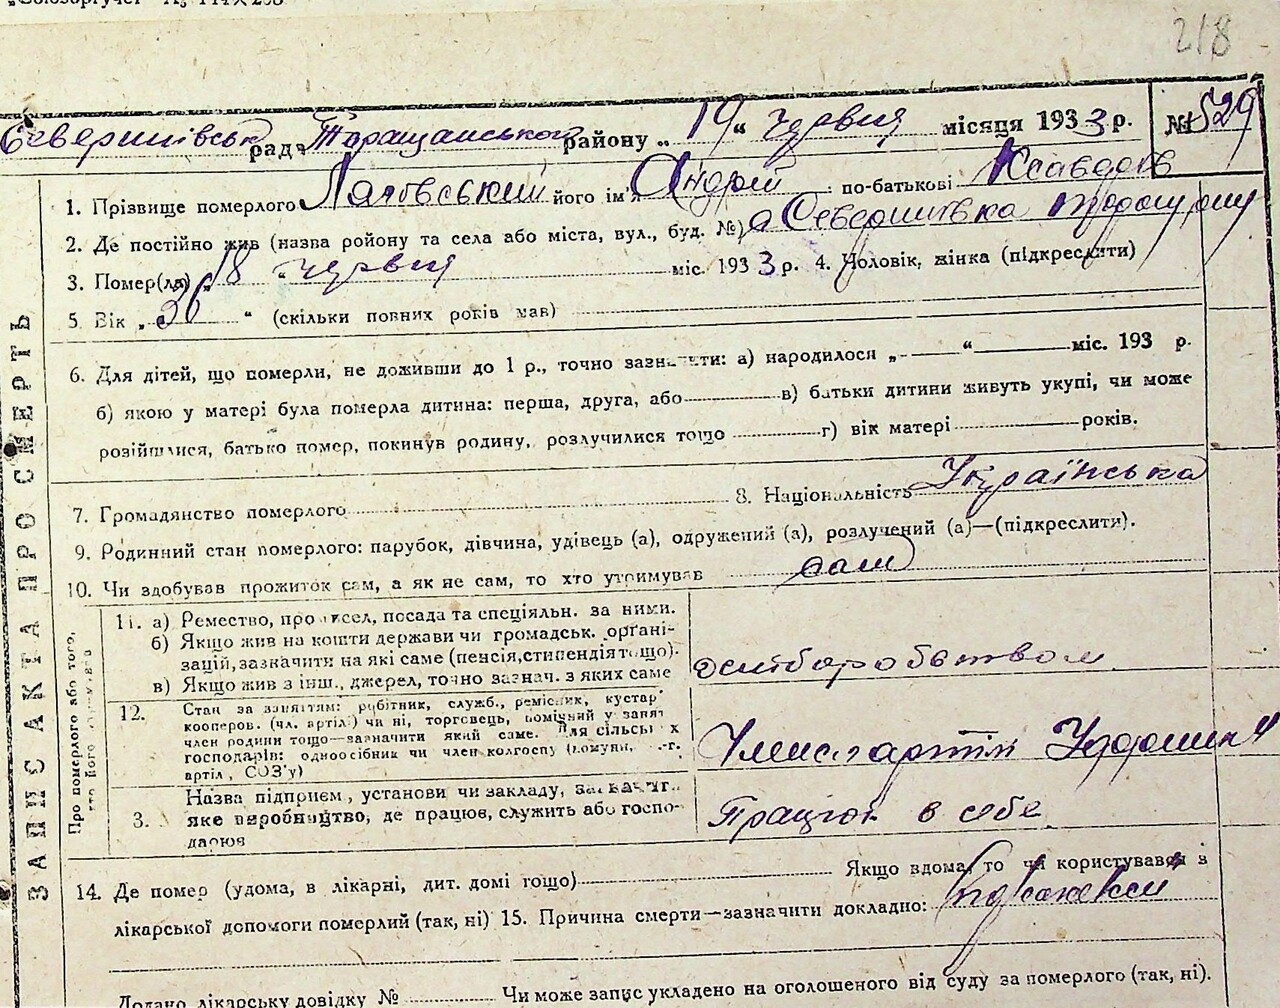 218
Северинівська рада Таращанського району „19“ червня місяця 1933 р. № 529
ЗАПИС АКТА ПРО СМЕРТЬ
1. Прізвище померлого його ім'я Андрій по-батькові
2. Де постійно жив (назва ройону та села або міста, вул., буд. №) с Северинівка
3. Помер(ла) „18“ червня міс. 1933 р. 4. Чоловік, жінка (підкреслити)
5. Вік „36“ (скільки повних років мав)
6. Для дітей, що померли, не доживши до 1 р., точно зазначити: а) народилося „ “ міс. 193 р.
б) якою у матері була померла дитина: перша, друга, або в) батьки дитини живуть укупі, чи може
розійшлися, батько помер, покинув родину, розлучилися тощо г) вік матері років.
7. Громадянство померлого 8. Національність Українська
9. Родинний стан померлого: парубок, дівчина, удівець (а), одружений (а), розлучений (а)—(підкреслити).
10. Чи здобував прожиток сам, а як не сам, то хто утримував сам
Про померлого або того,
11. а) Ремество, професія, посада та спеціяльн. за ними.
б) Якщо жив на кошти держави чи громадськ. органі-
зацій, зазначити на які саме (пенсія, стипендія тощо).
в) Якщо жив з інш., джерел, точно зазнач. з яких саме
12. Стан за заняттям: робітник, служб., ремісник, кустар
кооперов. (чл. артіл.) чи ні, торговець, помічний у занят
член родини тощо—зазначити який саме. Для сільськ х
господарів: одноосібник чи член колгоспу (комуни, с.-г.
артіл, СОЗ'у)
3. Назва підприєм, установи чи закладу, зазначит.
яке виробництво, де працює, служить або госпо-
дарює
в себе
14. Де помер (удома, в лікарні, дит. домі тощо) Якщо вдома, то чи користувався з
лікарської допомоги померлий (так, ні) 15. Причина смерти—зазначити докладно:
Додано лікарську довідку № Чи може запис укладено на оголошеного від суду за померлого (так, ні).